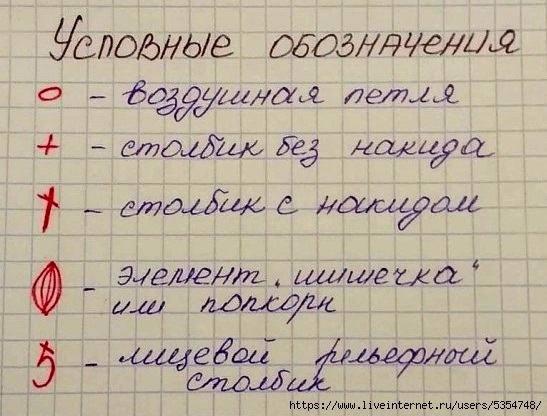 Условные обозначения
о – воздушная петля
+ – столбик без накида
† – столбик с накидом
– элемент „шишечка“
или попкорн
5 – лицевой рельефный
столбик
https://www.liveinternet.ru/users/5354748/